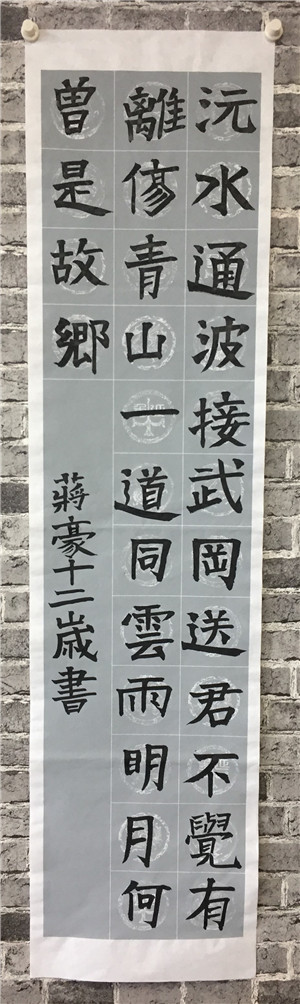 沅水通波接武岡送君不覺有
離傷青山一道同雲雨明月何
曽是故鄉
蔣豪十二歲書